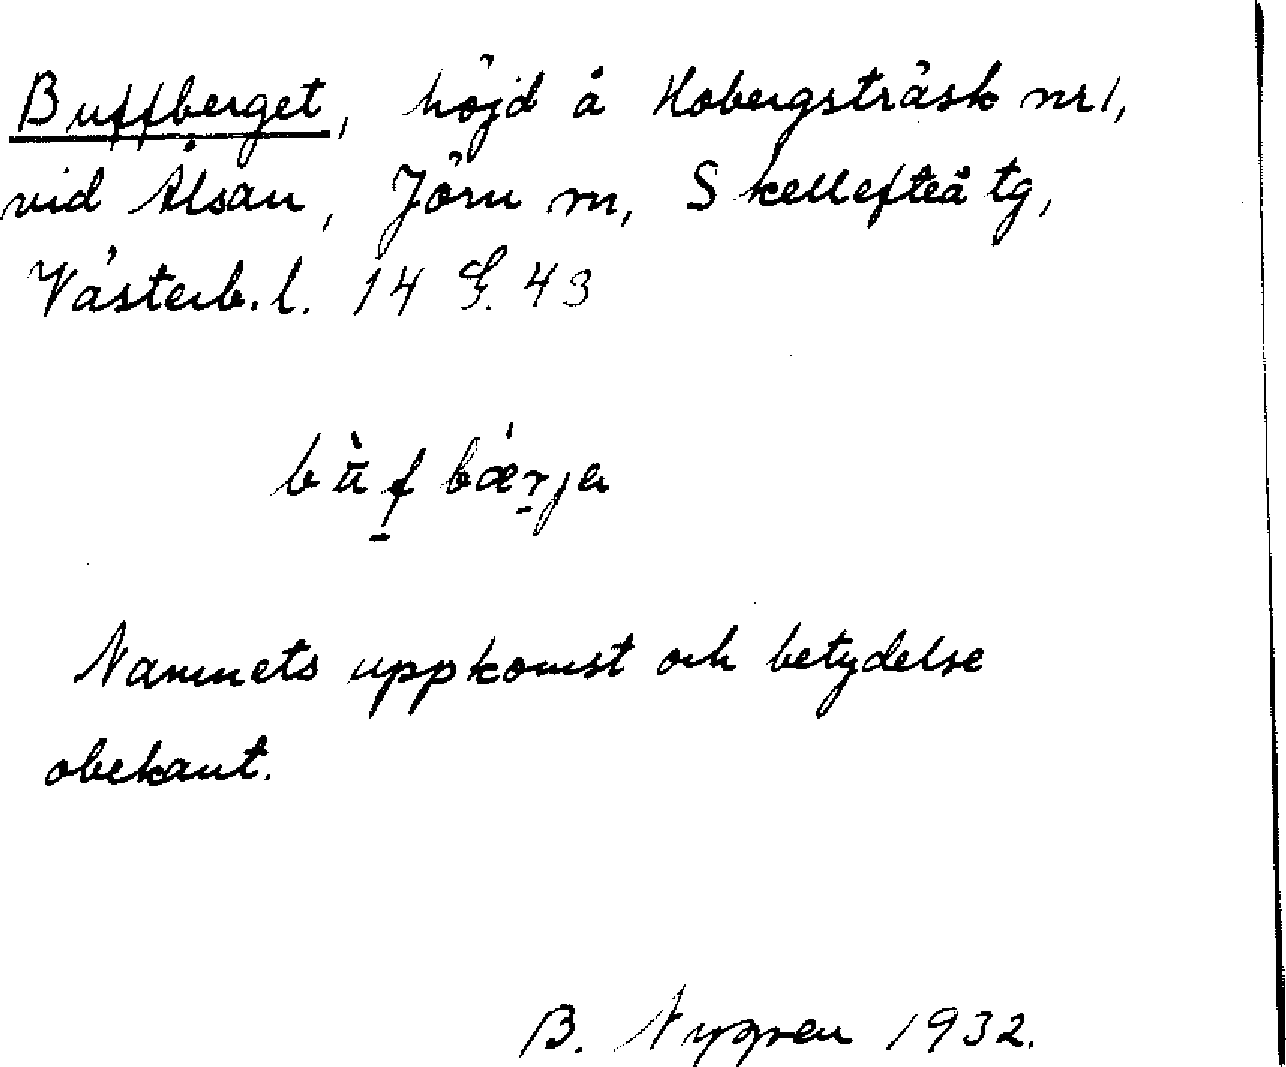 Buffberget, höjd å Hobergsträsk nr 1,
vid Ålsån, Jörn sn, Skellefteå tg,
Västerb. l. 14 G. 43
bùf bærja
Namnets uppkomst och betydelse
obekant.
B. Nygren 1932.